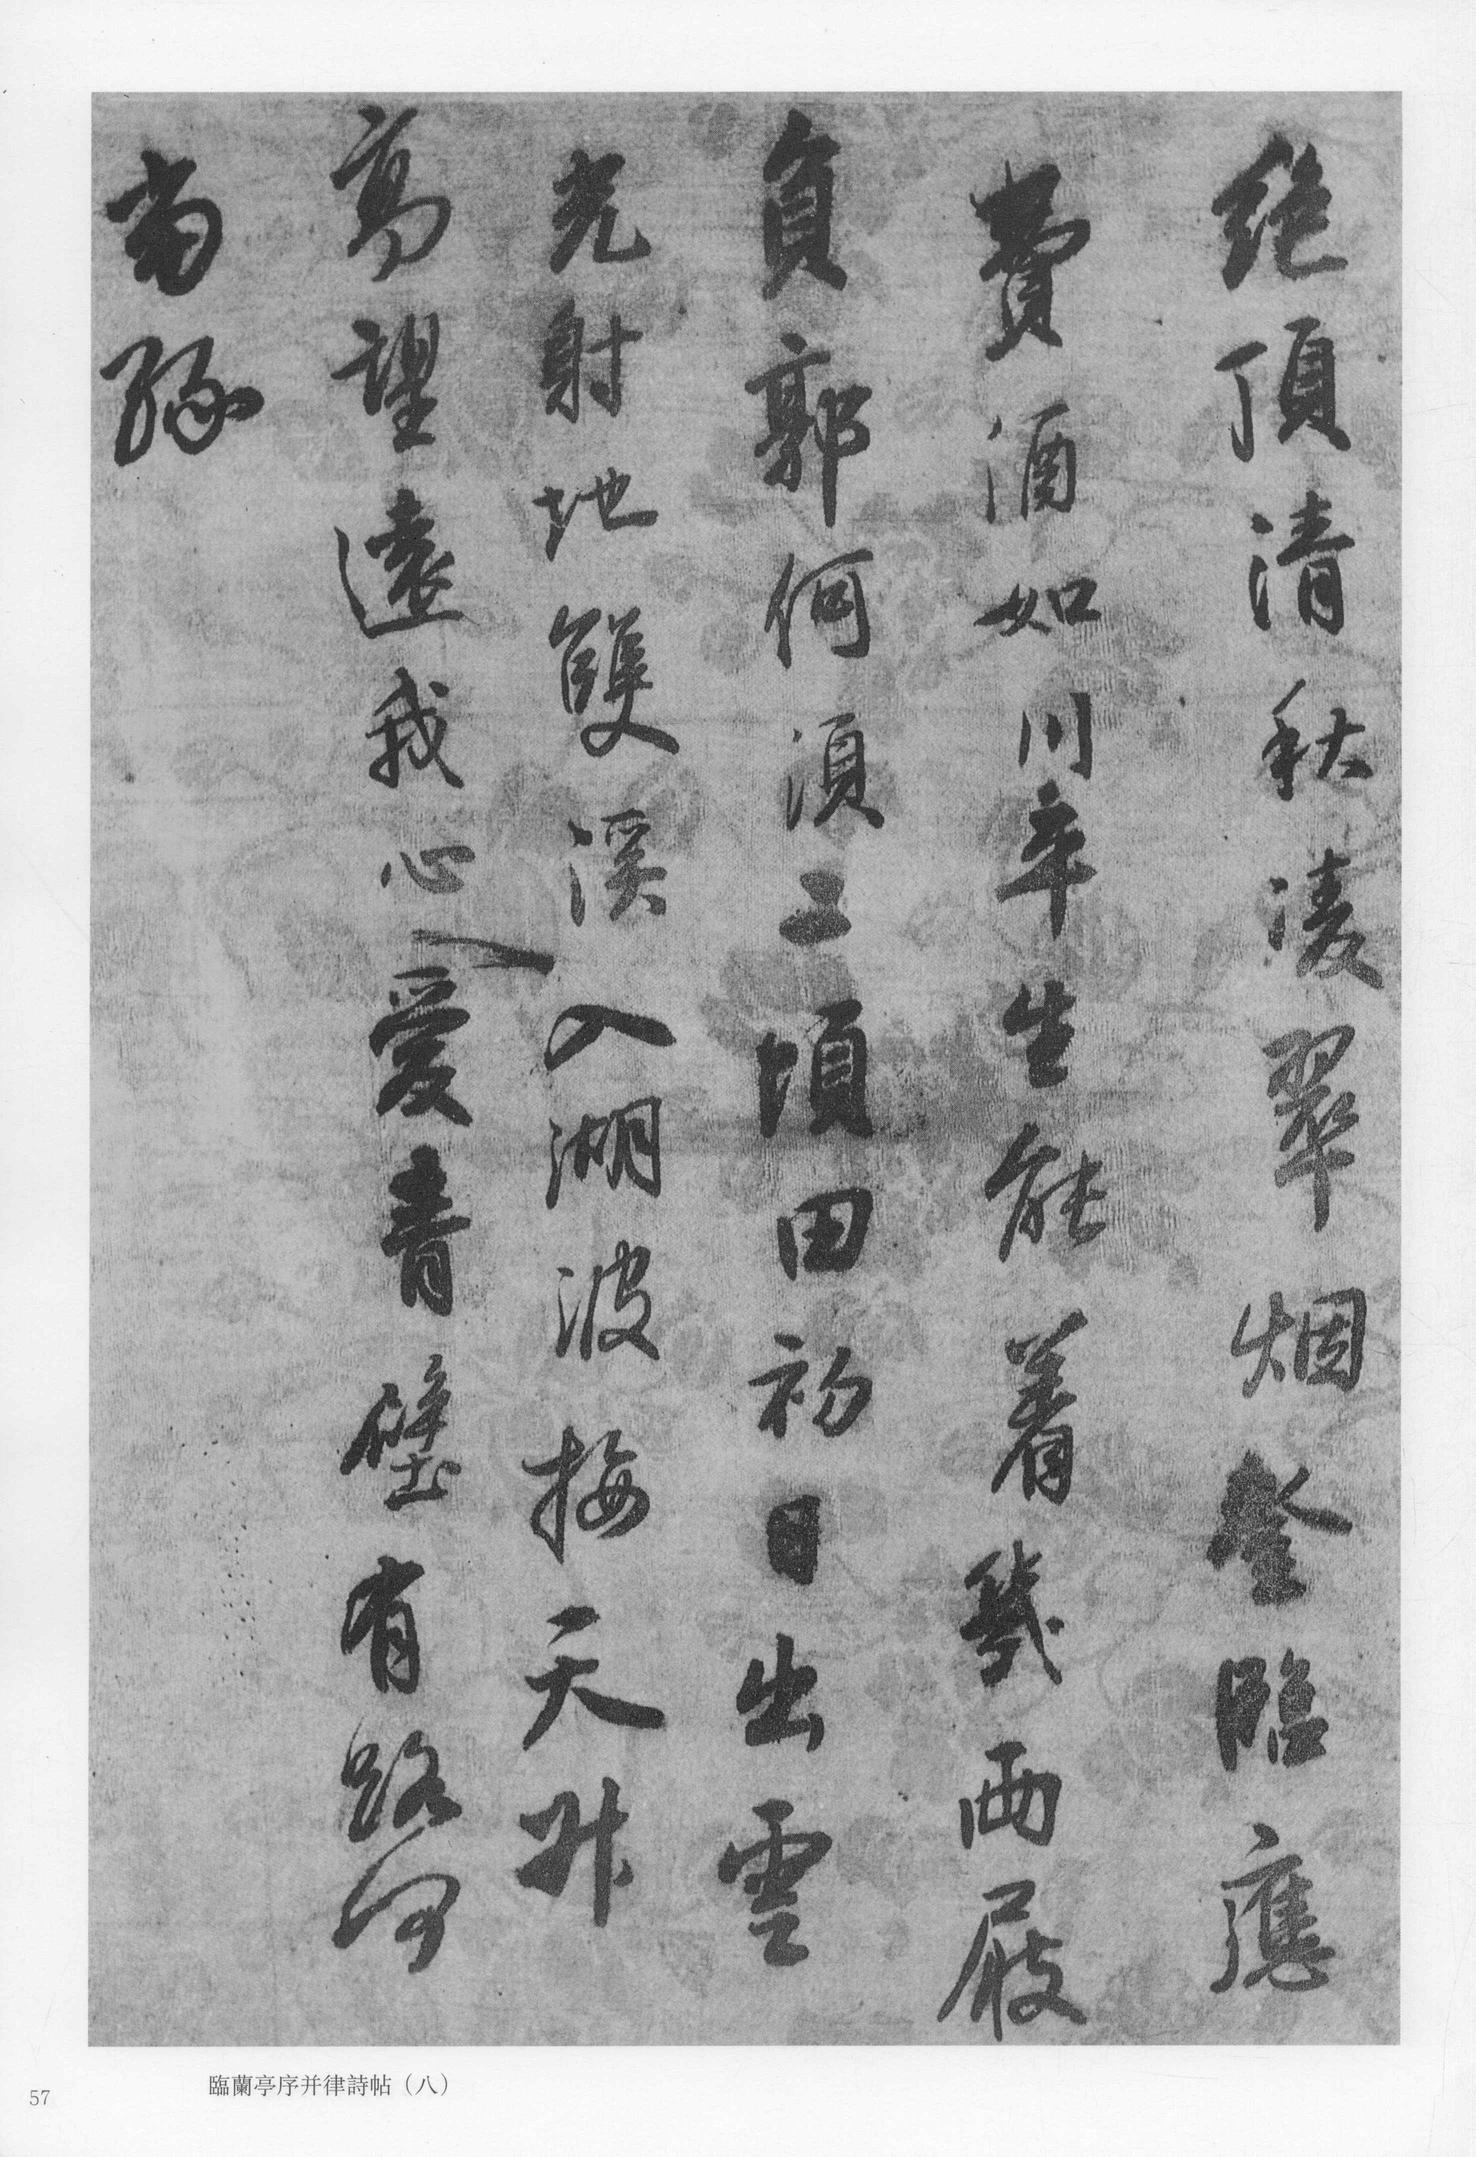 絶頂清秋凌翠烟登臨應
費酒如川平生能着幾兩屐
負郭何須二頃田初日出雲
光射地雙溪入湖波接天升
高望遠我心愛青壁有路何
當緣
臨蘭亭序并律詩帖（八）
57